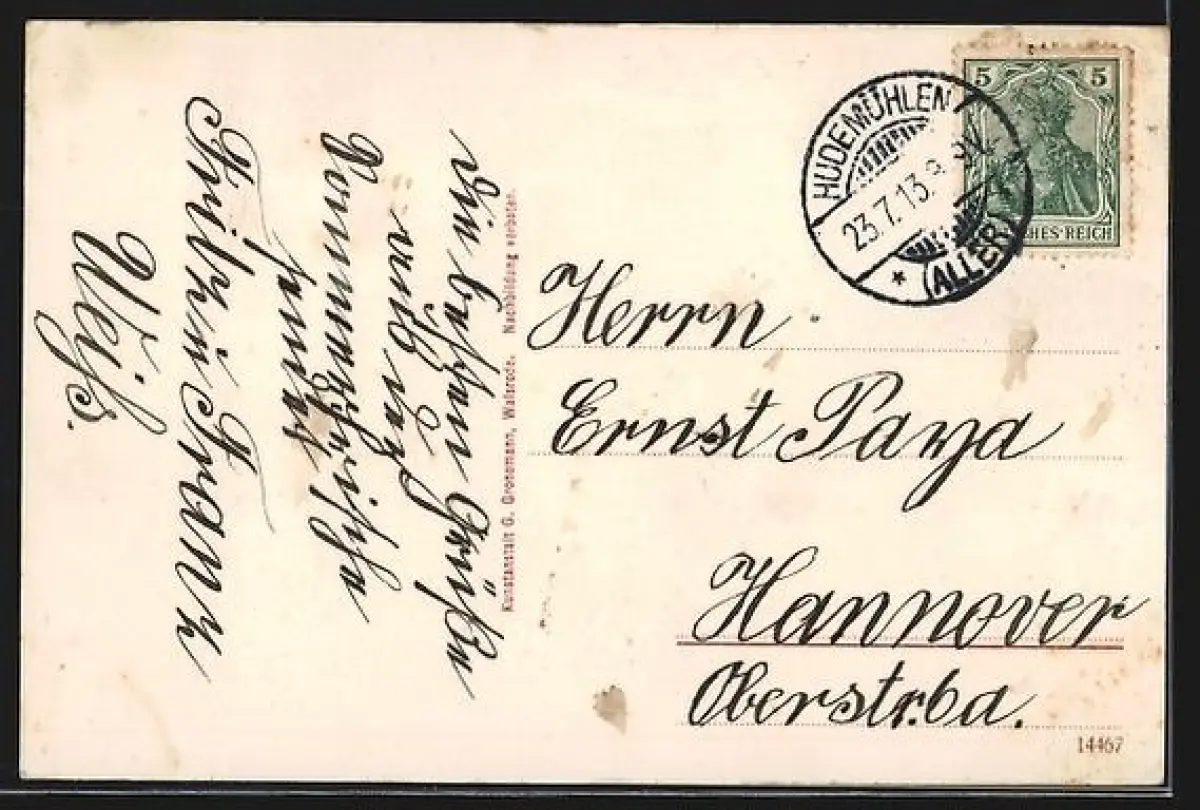 Die besten Grüße
und das
Sommerfrische
sendet
Fritz Frank
Weiß.
Kunstanstalt G. Grossmann, Walsrode. Nachbildung verboten.
HUDEMÜHLEN
23.7.13.
* (ALLER)
5 5
CHES·REICH
Herrn
Ernst Paya
Hannover
Oberstr. 6a.
14467